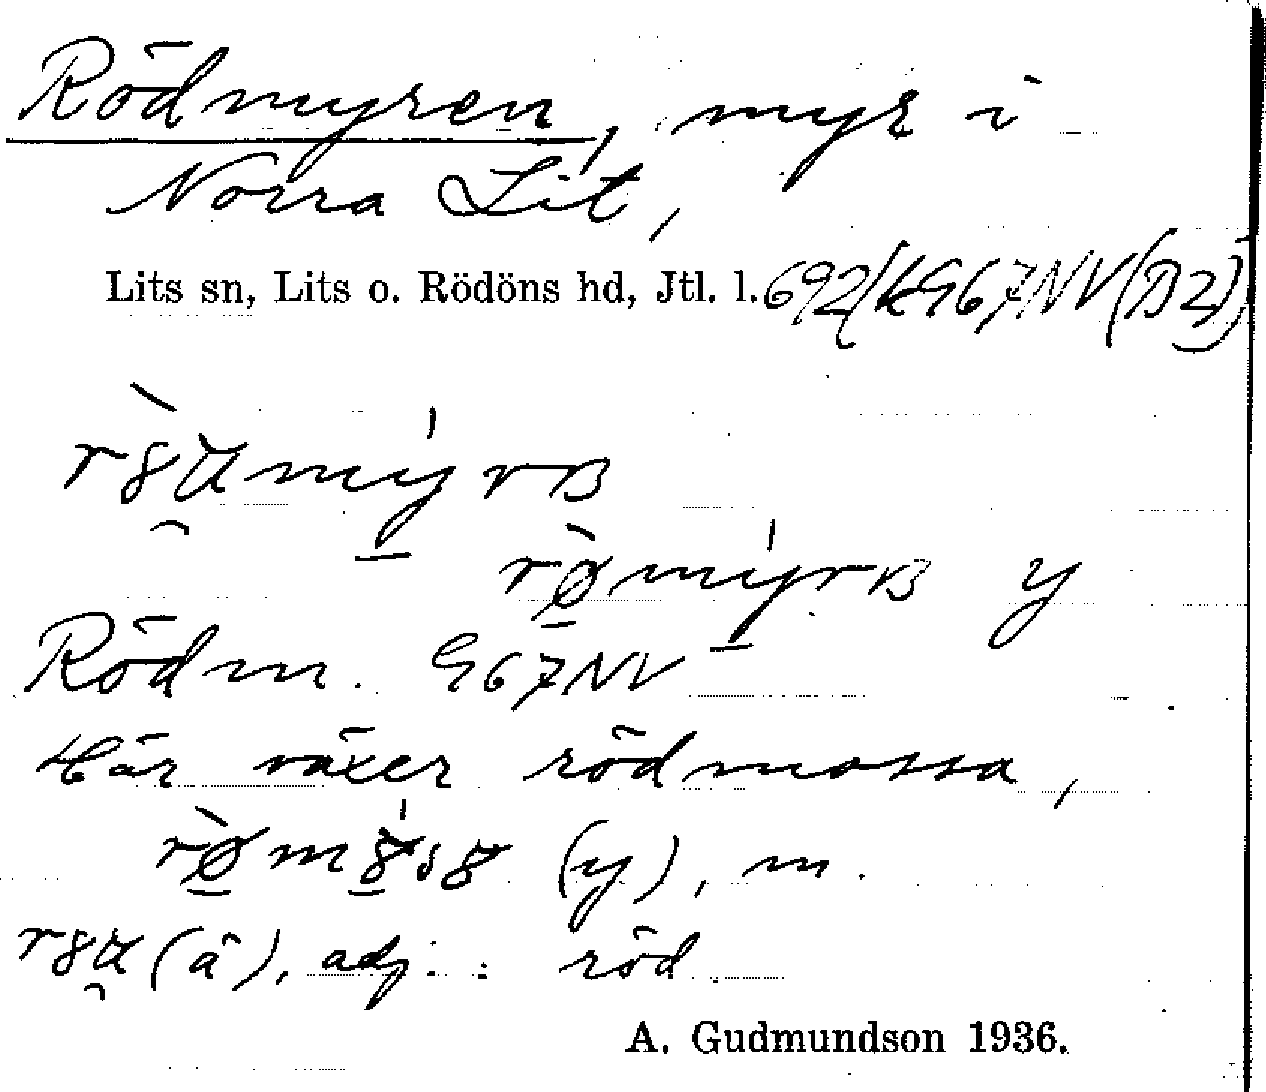 Rödmyren, myr i
Norra Lit,
Lits sn, Lits o. Rödöns hd, Jtl. l. 692/k967NV(B2)
y
Rödm. 967NV
Här växer rödmossa,
(y), m.
(ä), adj.: röd
A. Gudmundson 1936.